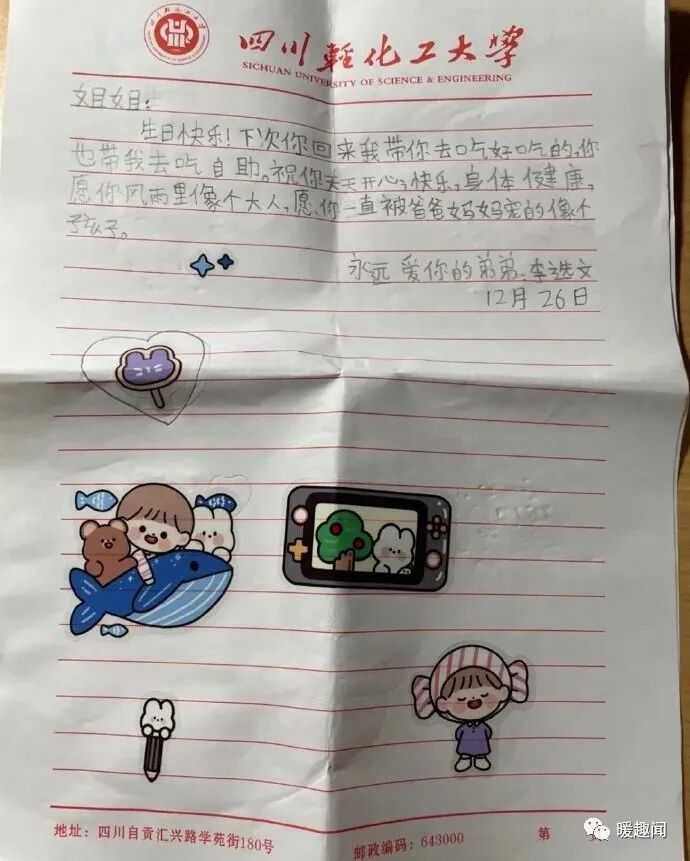 四川轻化工大学
SICHUAN UNIVERSITY OF SCIENCE & ENGINEERING
姐姐：
生日快乐！下次你回来我带你去吃好吃的，你
也带我去吃自助。祝你天天开心，快乐，身体健康，
愿你风雨里像个大人，愿你一直被爸爸妈妈宠的像个
孩子。
永远爱你的弟弟：李选文
12月26日
地址：四川自贡汇兴路学苑街180号
邮政编码：643000
第
页
暖趣闻